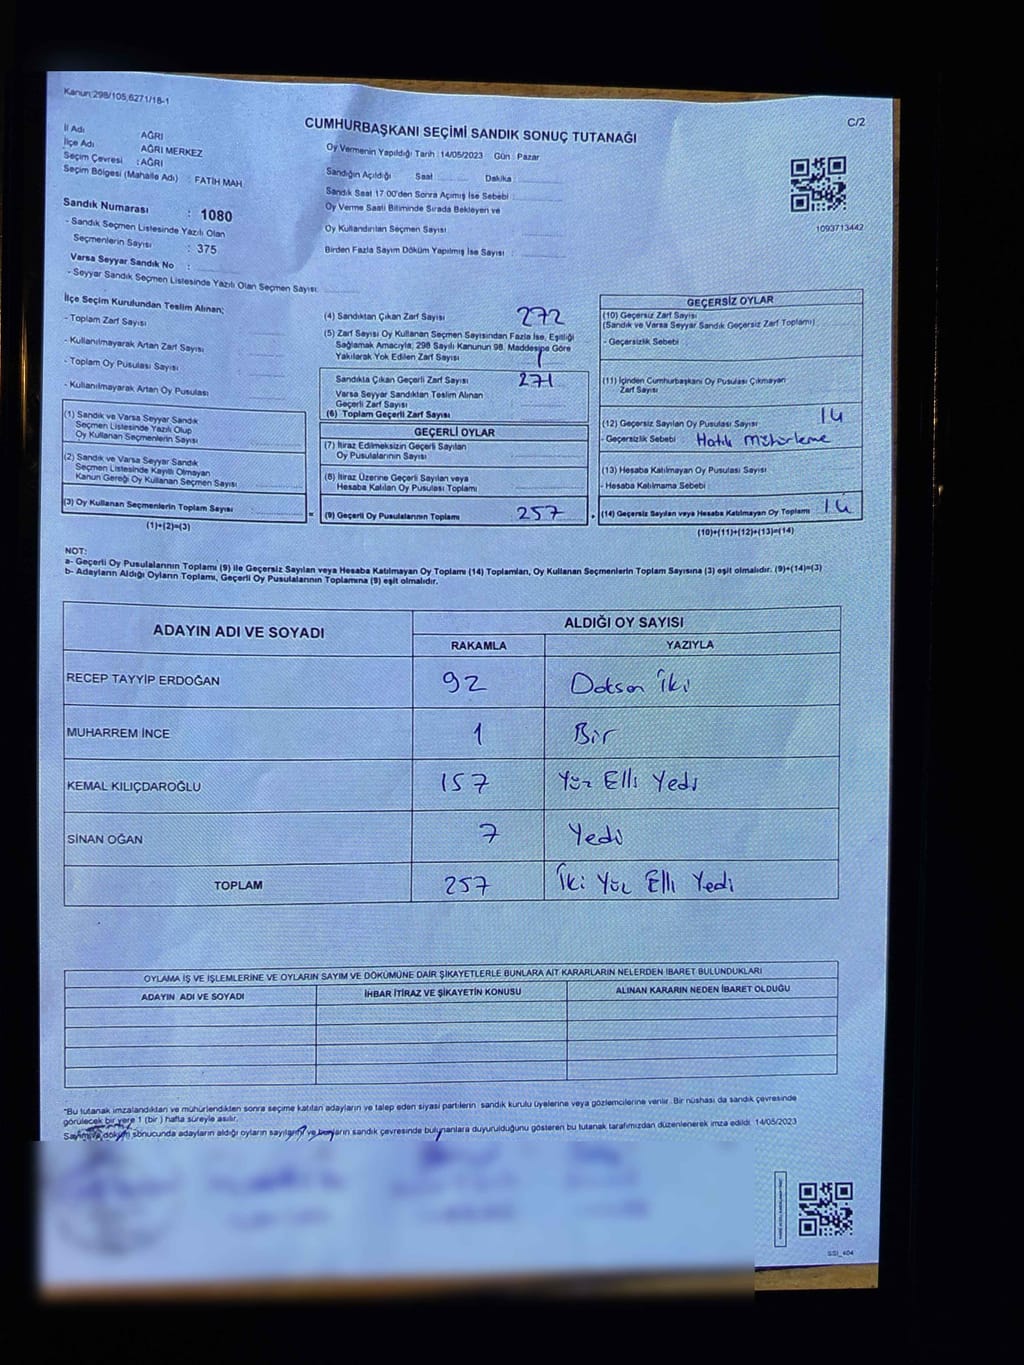 Kanun:298/105,6271/18-1
C/2
CUMHURBAŞKANI SEÇİMİ SANDIK SONUÇ TUTANAĞI
İl Adı AĞRI
İlçe Adı AĞRI MERKEZ
Seçim Çevresi : AĞRI
Seçim Bölgesi (Mahalle Adı) : FATİH MAH
Sandık Numarası : 1080
- Sandık Seçmen Listesinde Yazılı Olan
Seçmenlerin Sayısı : 375
Varsa Seyyar Sandık No :
- Seyyar Sandık Seçmen Listesinde Yazılı Olan Seçmen Sayısı:
Oy Vermenin Yapıldığı Tarih :14/05/2023 Gün : Pazar
Sandığın Açıldığı Saat Dakika :
Sandık Saat 17.00'den Sonra Açımış İse Sebebi :
Oy Verme Saati Bitiminde Sırada Bekleyen ve
Oy Kullandırılan Seçmen Sayısı
Birden Fazla Sayım Döküm Yapılmış İse Sayısı :
1093713442
İlçe Seçim Kurulundan Teslim Alınan;
- Toplam Zarf Sayısı
- Kullanılmayarak Artan Zarf Sayısı
- Toplam Oy Pusulası Sayısı
- Kullanılmayarak Artan Oy Pusulası
(1) Sandık ve Varsa Seyyar Sandık
Seçmen Listesinde Yazılı Olup
Oy Kullanan Seçmenlerin Sayısı
(2) Sandık ve Varsa Seyyar Sandık
Seçmen Listesinde Kayıtlı Olmayan
Kanun Gereği Oy Kullanan Seçmen Sayısı
(3) Oy Kullanan Seçmenlerin Toplam Sayısı
(1)+(2)=(3)
(4) Sandıktan Çıkan Zarf Sayısı 272
(5) Zarf Sayısı Oy Kullanan Seçmen Sayısından Fazla İse, Eşitliği
Sağlamak Amacıyla, 298 Sayılı Kanunun 98. Maddesine Göre
Yakılarak Yok Edilen Zarf Sayısı 1
Sandıkta Çıkan Geçerli Zarf Sayısı 271
Varsa Seyyar Sandıktan Teslim Alınan
Geçerli Zarf Sayısı
(6) Toplam Geçerli Zarf Sayısı
GEÇERLİ OYLAR
(7) İtiraz Edilmeksizin Geçerli Sayılan
Oy Pusulalarının Sayısı
(8) İtiraz Üzerine Geçerli Sayılan veya
Hesaba Katılan Oy Pusulası Toplamı
= (9) Geçerli Oy Pusulalarının Toplamı 257 +
GEÇERSİZ OYLAR
(10) Geçersiz Zarf Sayısı
(Sandık ve Varsa Seyyar Sandık Geçersiz Zarf Toplamı)
- Geçersizlik Sebebi :
(11) İçinden Cumhurbaşkanı Oy Pusulası Çıkmayan
Zarf Sayısı
(12) Geçersiz Sayılan Oy Pusulası Sayısı 14
- Geçersizlik Sebebi : Hatalı Mühürleme
(13) Hesaba Katılmayan Oy Pusulası Sayısı
- Hesaba Katılmama Sebebi :
(14) Geçersiz Sayılan veya Hesaba Katılmayan Oy Toplamı 14
(10)+(11)+(12)+(13)=(14)
NOT:
a- Geçerli Oy Pusulalarının Toplamı (9) ile Geçersiz Sayılan veya Hesaba Katılmayan Oy Toplamı (14) Toplamları, Oy Kullanan Seçmenlerin Toplam Sayısına (3) eşit olmalıdır. (9)+(14)=(3)
b- Adayların Aldığı Oyların Toplamı, Geçerli Oy Pusulalarının Toplamına (9) eşit olmalıdır.
ADAYIN ADI VE SOYADI
ALDIĞI OY SAYISI
RAKAMLA YAZIYLA
RECEP TAYYİP ERDOĞAN 92 Doksan İki
MUHARREM İNCE 1 Bir
KEMAL KILIÇDAROĞLU 157 Yüz Elli Yedi
SİNAN OĞAN 7 Yedi
TOPLAM 257 İki Yüz Elli Yedi
OYLAMA İŞ VE İŞLEMLERİNE VE OYLARIN SAYIM VE DÖKÜMÜNE DAİR ŞİKAYETLERLE BUNLARA AİT KARARLARIN NELERDEN İBARET BULUNDUKLARI
ADAYIN ADI VE SOYADI İHBAR İTİRAZ VE ŞİKAYETİN KONUSU ALINAN KARARIN NEDEN İBARET OLDUĞU
*Bu tutanak imzalandıktan ve mühürlendikten sonra seçime katılan adayların ve talep eden siyasi partilerin sandık kurulu üyelerine veya gözlemcilerine verilir. Bir nüshası da sandık çevresinde
görülecek bir yere 1 (bir) hafta süreyle asılır.
Sayım ve döküm sonucunda adayların aldığı oyların sayılarını ve bunların sandık çevresinde bulunanlara duyurulduğunu gösteren bu tutanak tarafımızdan düzenlenerek imza edildi. 14/05/2023
SSI_404